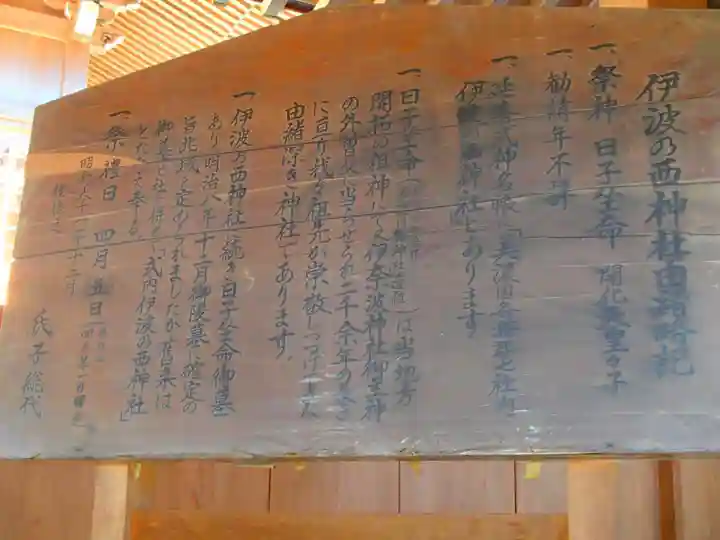 伊波乃西神社由緒略記
一、祭神 日子坐命 開化天皇皇子
一、勧請年不詳
一、延喜式神名帳に「美濃国各務郡七社内
伊波乃西神社」とあります
一、日子坐命は当地方
開拓の祖神にして伊奈波神社御主神
の外曽父に当らせられ二千余年の久き
に亘り我々祖先が崇敬しつづけました
由緒深き神社であります。
一、伊波乃西神社に続き日子坐命御墓
あり明治八年十二月御陵墓に確定の
御墓と社を併せ「式内伊波乃西神社」
一、祭禮日 四月五日
昭和六十二年十二月
氏子総代